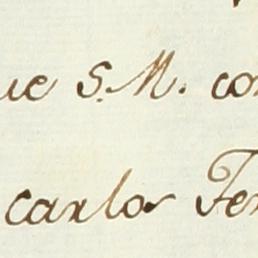 ue S.M. con
carlos Fer